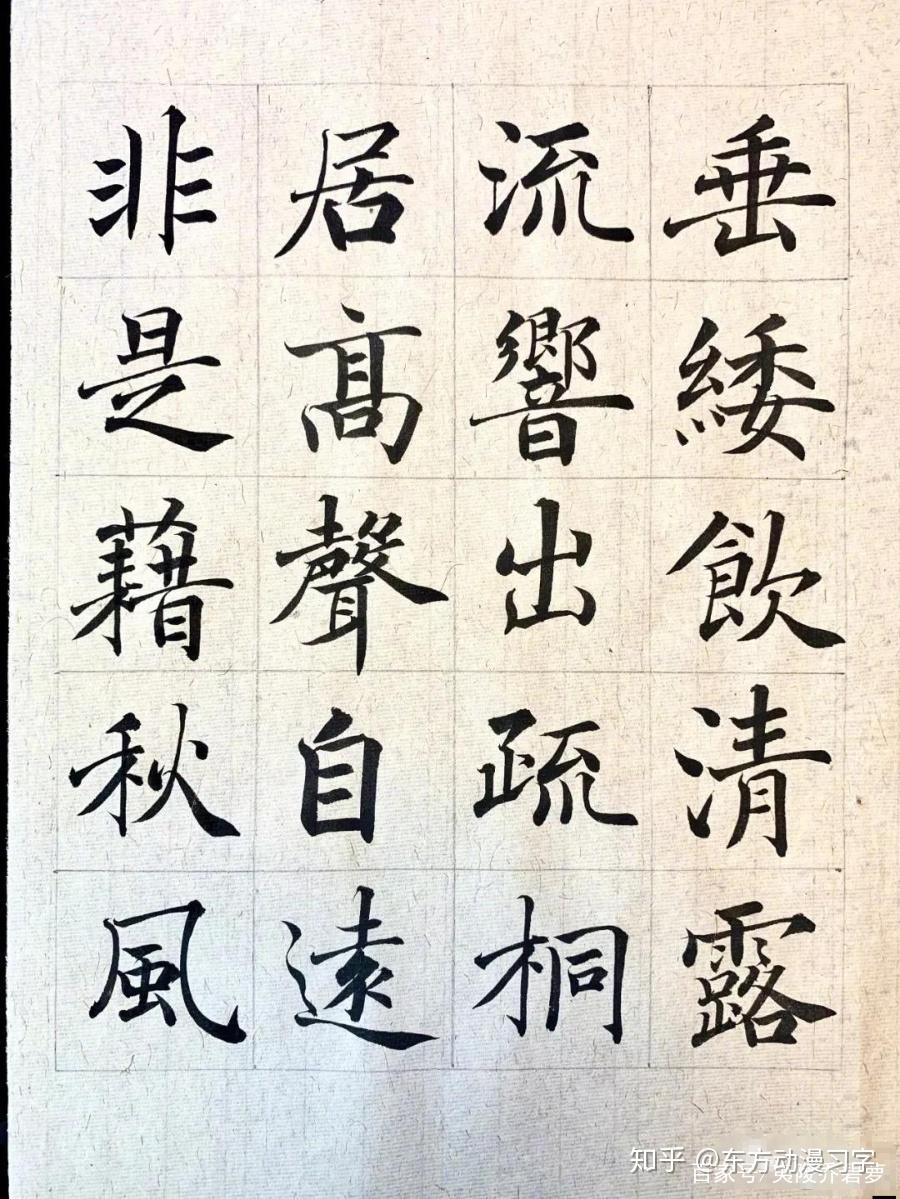 垂緌飲清露
流響出疏桐
居髙聲自遠
非是藉秋風
知乎 @东方动漫习字
百家号/夷陵乔碧萝